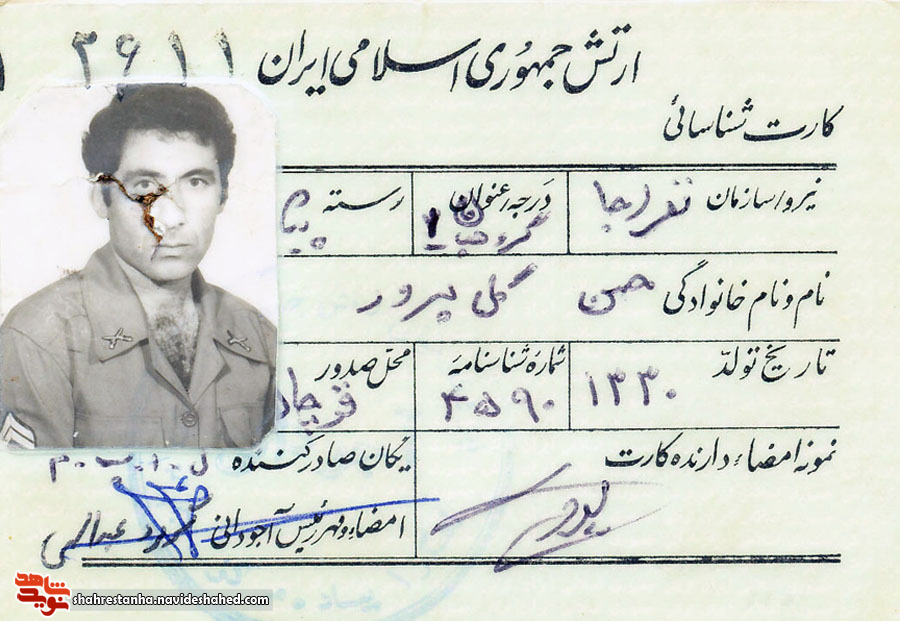 ۳۶۱۱
ارتش جمهوری اسلامی ایران
کارت شناسائی
نیرو/سازمان نزاجا
درجه/عنوان گروهبان ۱
رسته
نام و نام خانوادگی حسن گل پرور
تاریخ تولد ۱۳۳۰
شماره شناسنامه ۴۵۹۰
محل صدور قوچان
نمونه امضاء دارنده کارت
یگان صادر کننده
امضاء و مهر رئیس آجودانی
نوید شاهد
shahrestanha.navideshahed.com